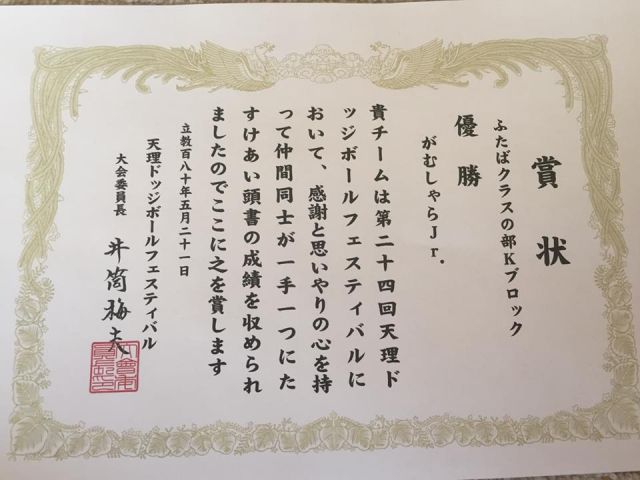 賞状
ふたばクラスの部Kブロック
優勝
がむしゃらJr.
貴チームは第二十四回天理ド
ッジボールフェスティバルに
おいて、感謝と思いやりの心を持
って仲間同士が一手一つにた
すけあい頭書の成績を収められ
ましたのでここに之を賞します
立教百八十年五月二十一日
天理ドッジボールフェスティバル
大会委員長 井筒梅夫